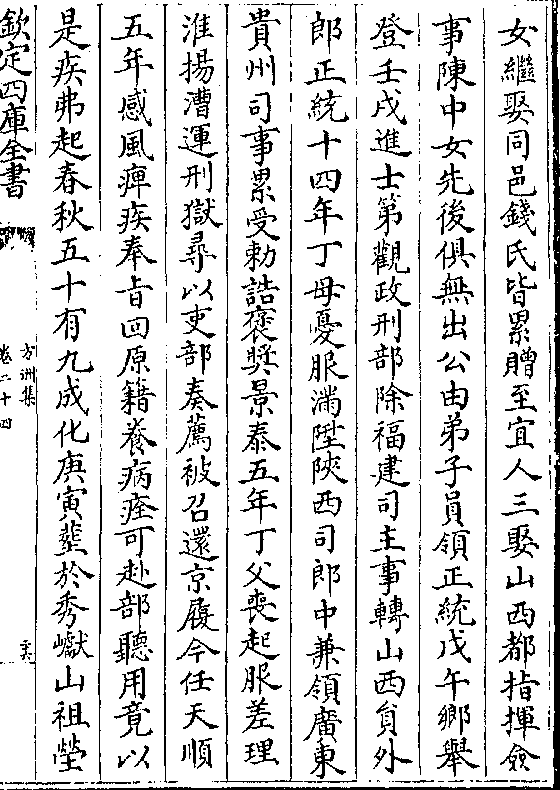 女繼娶同邑錢氏皆累贈至宜人三娶山西都指揮僉
事陳中女先後俱無出公由弟子員領正統戊午鄉舉
登壬戌進士第觀政刑部除福建司主事轉山西貟外
郎正統十四年丁母憂服滿陞陜西司郎中兼領廣東
貴州司事累受勅誥褒奨景泰五年丁父喪起服差理
淮揚漕運刑獄尋以吏部奏薦被召還京履今任天順
五年感風痺疾奉㫖回原籍養病痊可赴部聽用竟以
是疾弗起春秋五十有九成化庚寅塟於秀巘山祖塋
欽定四庫全書
方洲集
卷二十四